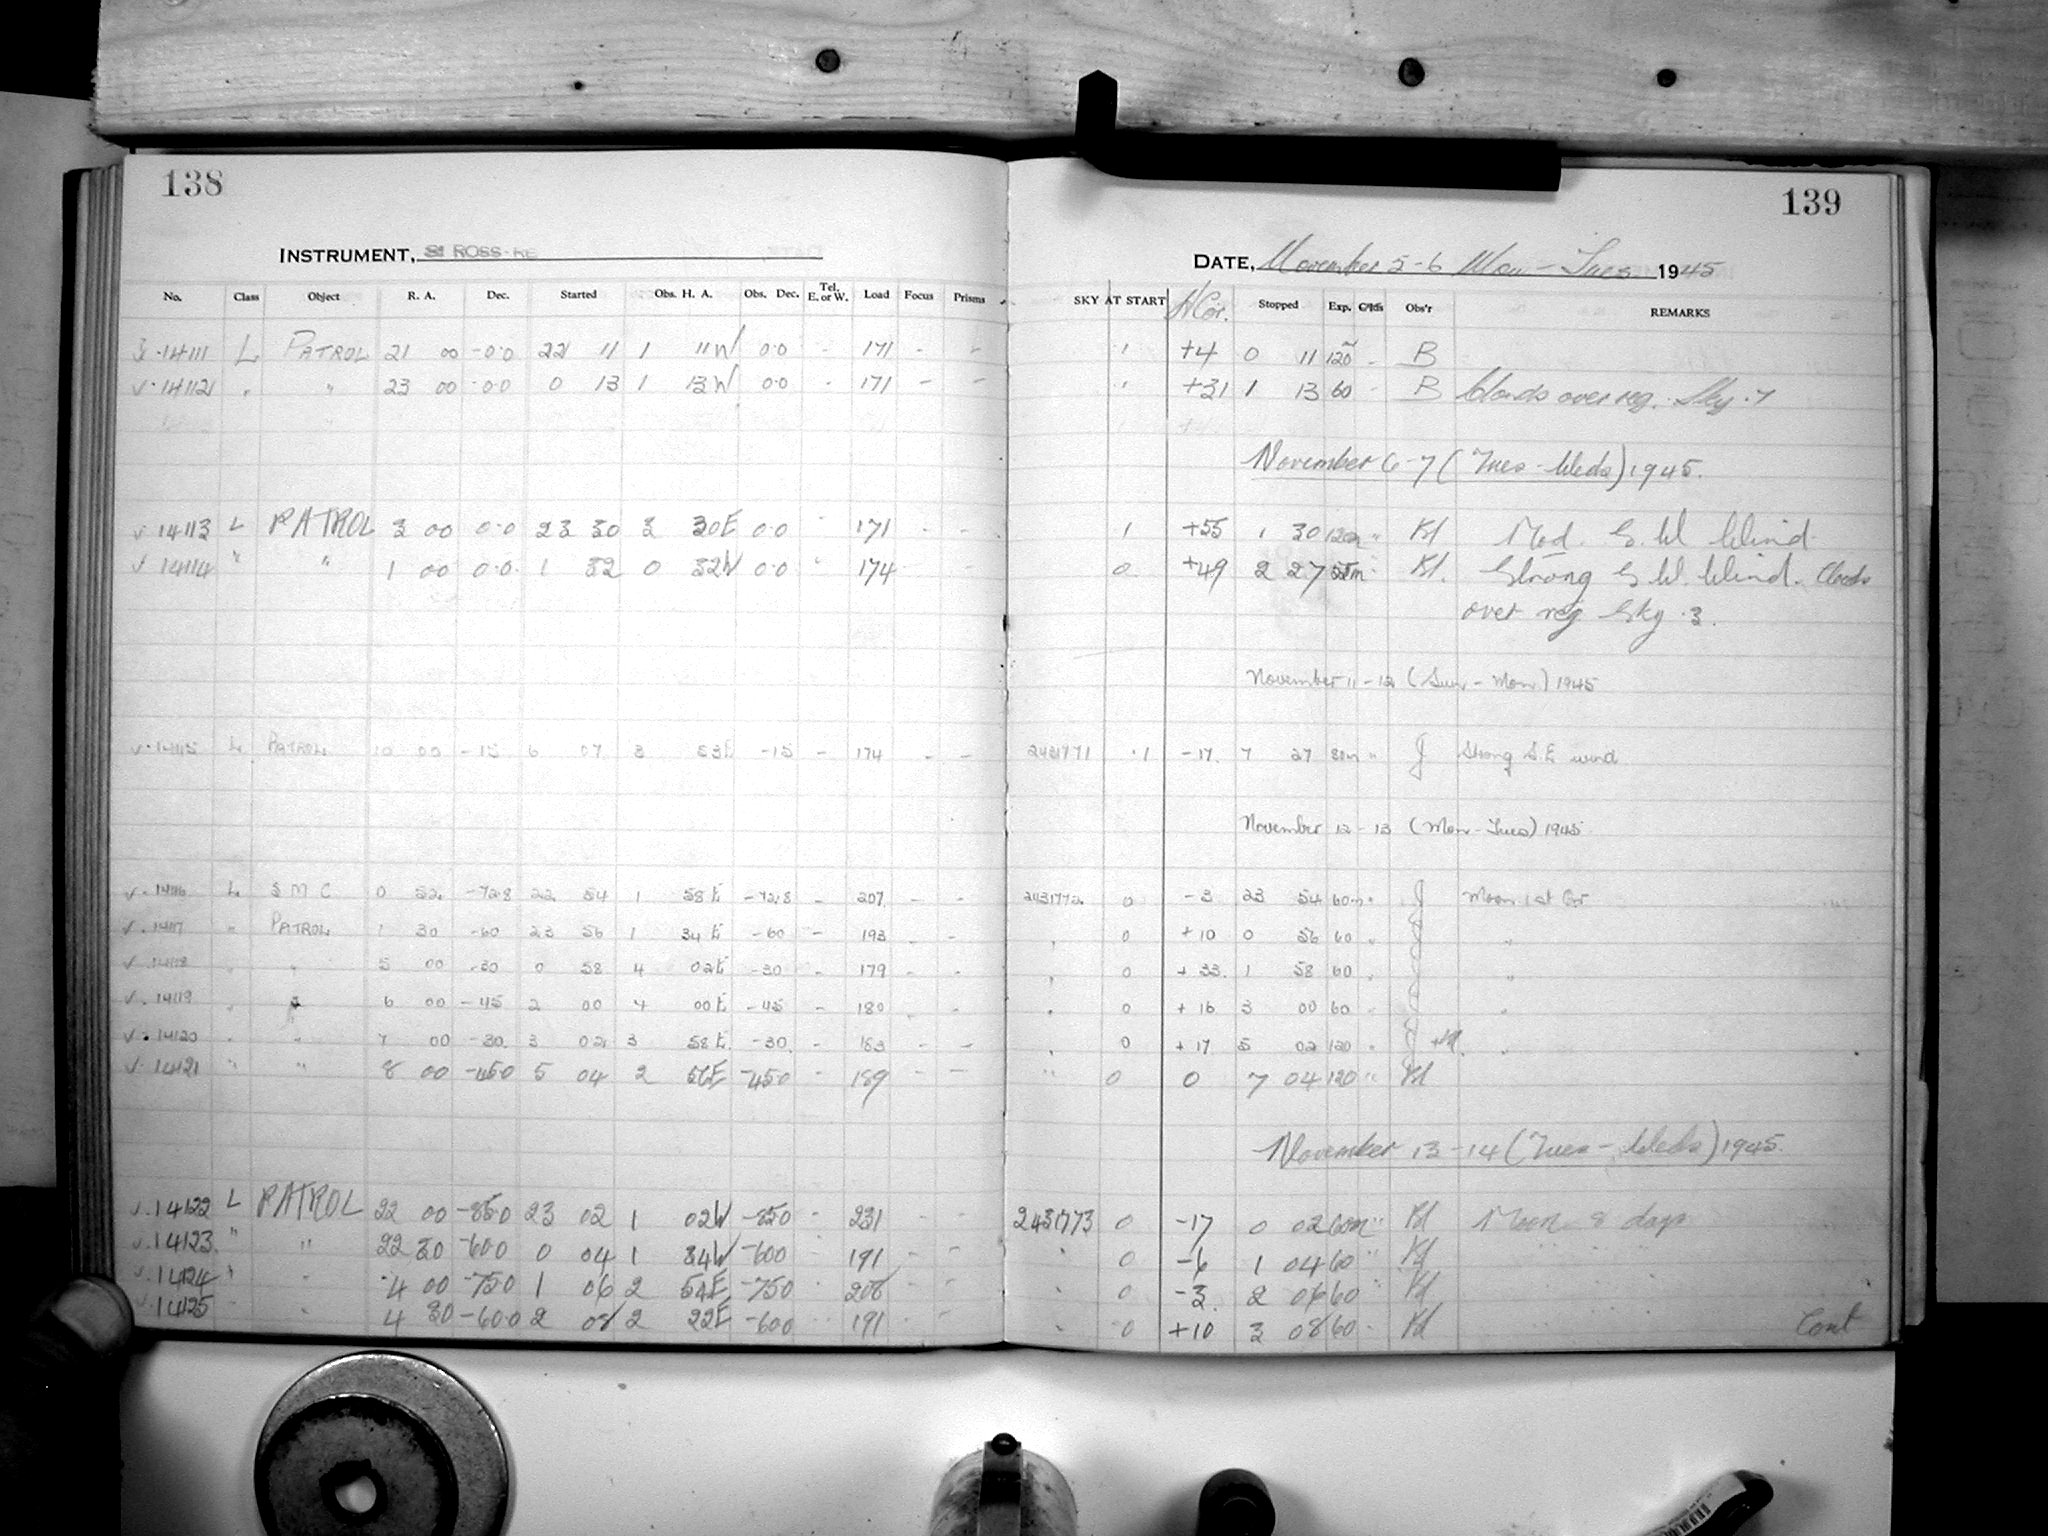 138
INSTRUMENT, ROSS-
No. Class Object R. A. Dec. Started Obs. H. A. Obs. Dec. Tel. E. or W. Load Focus Prisms
14111 L PATROL 21 00 -0.0 22 11 1 11W 0.0 - 171 - -
14112 " " 23 00 -0.0 0 13 1 13W 0.0 - 171 - -
14113 L PATROL 3 00 0.0 23 30 3 30E 0.0 - 171 - -
14114 " " 1 00 0.0 1 32 0 32W 0.0 " 174 - -
14115 L PATROL 10 00 -15 6 07 3 53E -15 - 174 - -
14116 L S M C 0 52 -72.8 22 54 1 58E -72.8 - 207 - -
14117 " PATROL 1 30 -60 23 56 1 34E -60 - 193 - -
14118 " " 5 00 -30 0 58 4 02E -30 - 179 - -
14119 " " 6 00 -45 2 00 4 00E -45 - 180 - -
14120 " " 7 00 -30 3 02 3 58E -30 - 183 - -
14121 " " 8 00 -450 5 04 2 56E -450 - 189 - -
14122 L PATROL 22 00 -850 23 02 1 02W -850 - 231 - -
14123 " " 22 30 -600 0 04 1 34W -600 - 191 - -
14124 " " 4 00 -750 1 06 2 54E -750 - 208 - -
14125 " " 4 30 -600 2 08 2 22E -600 - 191 - -
139
DATE, November 5-6 Mon-Tues 1945
SKY AT START H Cor. Stopped Exp. Clds Obs'r REMARKS
1 +4 0 11 120 - B
1 +31 1 13 60 - B Clouds over reg. Sky .7
November 6-7 (Tues-Weds) 1945.
1 +55 1 30 120m " Bd Mod. S.W Wind.
0 +49 2 27 55m " Bd. Strong S.W. Wind. Clouds
over reg Sky .3.
November 11-12 (Sun-Mon) 1945
2431771 .1 -17. 7 27 80m " J Strong S.E wind
November 12-13 (Mon-Tues) 1945
2431772 0 -3 23 54 60m " J Moon 1st Qr
" 0 +10 0 56 60 " J "
" 0 +33. 1 58 60 " J "
" 0 +16 3 00 60 " J "
" 0 +17 5 02 120 " J "
" 0 0 7 04 120 " Bd
November 13-14 (Tues-Weds) 1945.
2431773 0 -17 0 02 60m " Bd Moon 8 days
" 0 -6 1 04 60 " Bd
" 0 -3. 2 06 60 " Bd
" 0 +10 3 08 60 - Bd
Cont